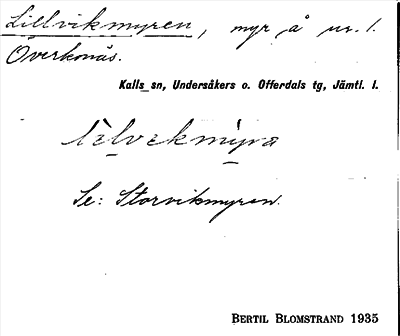 Lillvikmyren, myr å nr. 1.
Överknäs.
Kalls sn, Undersåkers o. Offerdals tg, Jämtl. l.
Se: Storvikmyren.
BERTIL BLOMSTRAND 1935